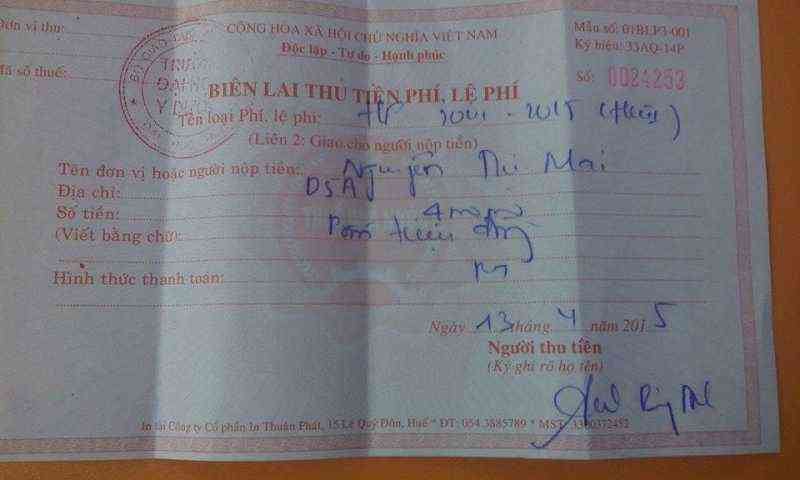 Đơn vị thu:
CỘNG HÒA XÃ HỘI CHỦ NGHĨA VIỆT NAM
Mẫu số: 01BLP3-001
Độc lập - Tự do - Hạnh phúc
Ký hiệu: 33AQ-14P
Mã số thuế:
Số: 0024253
BIÊN LAI THU TIỀN PHÍ, LỆ PHÍ
Tên loại Phí, lệ phí: HP - 2015
(Liên 2: Giao cho người nộp tiền)
Tên đơn vị hoặc người nộp tiền: Nguyễn Thị Mai
Địa chỉ: D5A
Số tiền:
(Viết bằng chữ): Bốn triệu đồng
Hình thức thanh toán:
Ngày 13 tháng 4 năm 2015
Người thu tiền
(Ký ghi rõ họ tên)
In tại Công ty Cổ phần In Thuận Phát, 15 Lê Quý Đôn, Huế * ĐT: 054.3885789 * MST: 3300372452